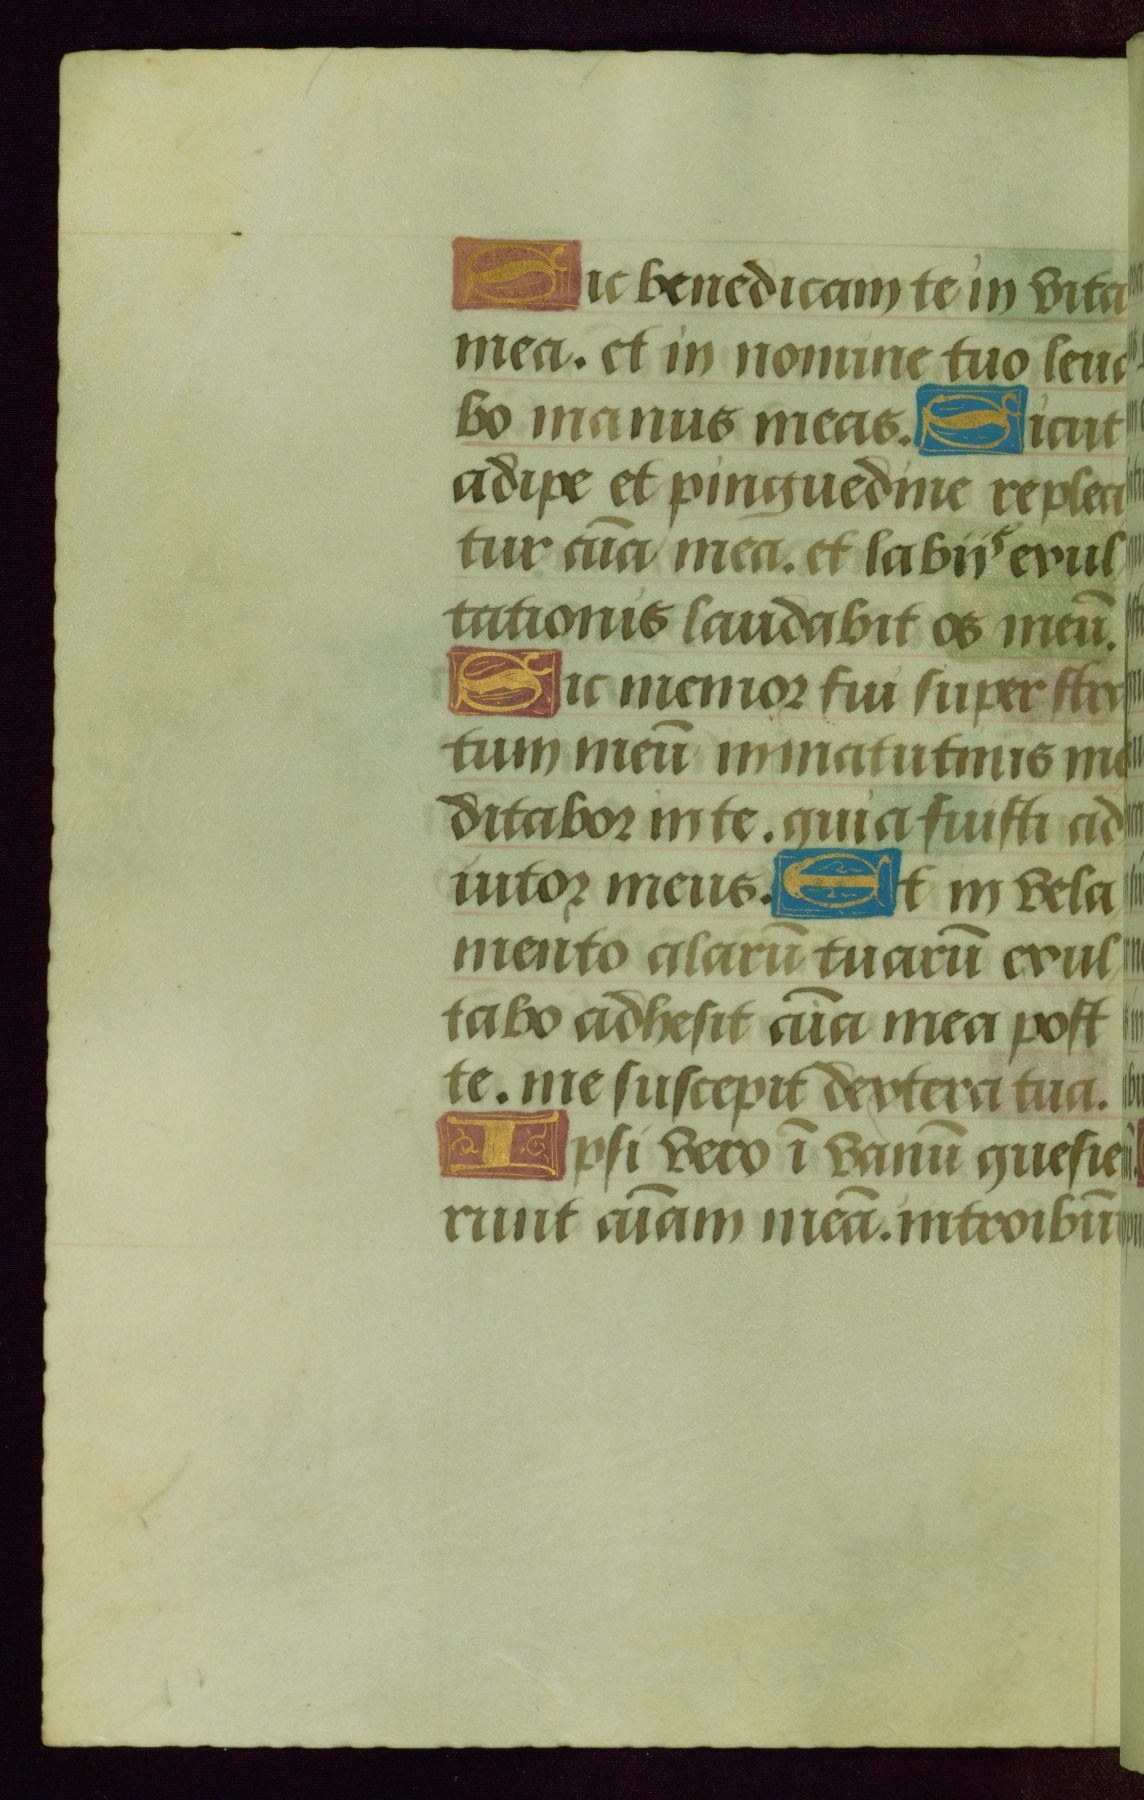 Sic benedicam te in vita
mea. et in nomine tuo leua
bo manus meas. Sicut
adipe et pinguedine replea
tur aīa mea. et labijs exul
tationis laudabit os meū.
Sic memor fui super stra
tum meū in matutinis me
ditabor in te. quia fuisti ad
iutor meus. Et in vela
mento alarū tuarū exul
tabo adhesit aīa mea post
te. me suscepit dextera tua.
Ipsi vero ī vanū quesie
runt aīam meā. introibūt